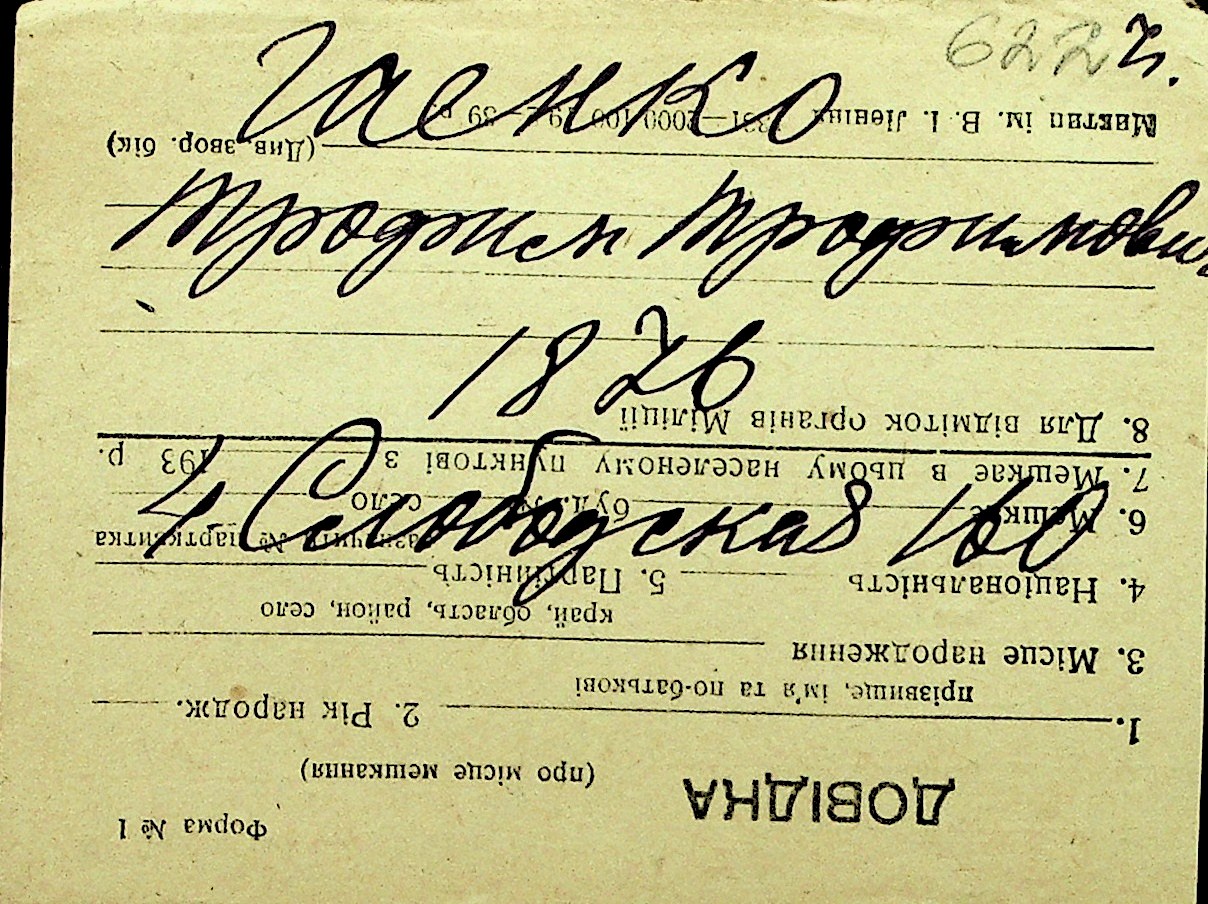 622 г.
Гаенко
Трофим Трофимович
1876
4 Слободская 160
ДОВІДНА
Форма № 1
(про місце мешкання)
1. 2. Рік народж.
прізвище, ім'я та по-батькові
3. Місце народження
край, область, район, село
4. Національність 5. Партійність
зазначити № партквитка
6. Мешкає буд. № село
7. Мешкає в цьому населеному пунктові з 193 р.
8. Для відміток органів Міліції
(Див. звор. бік)
ім. В. І. Леніна